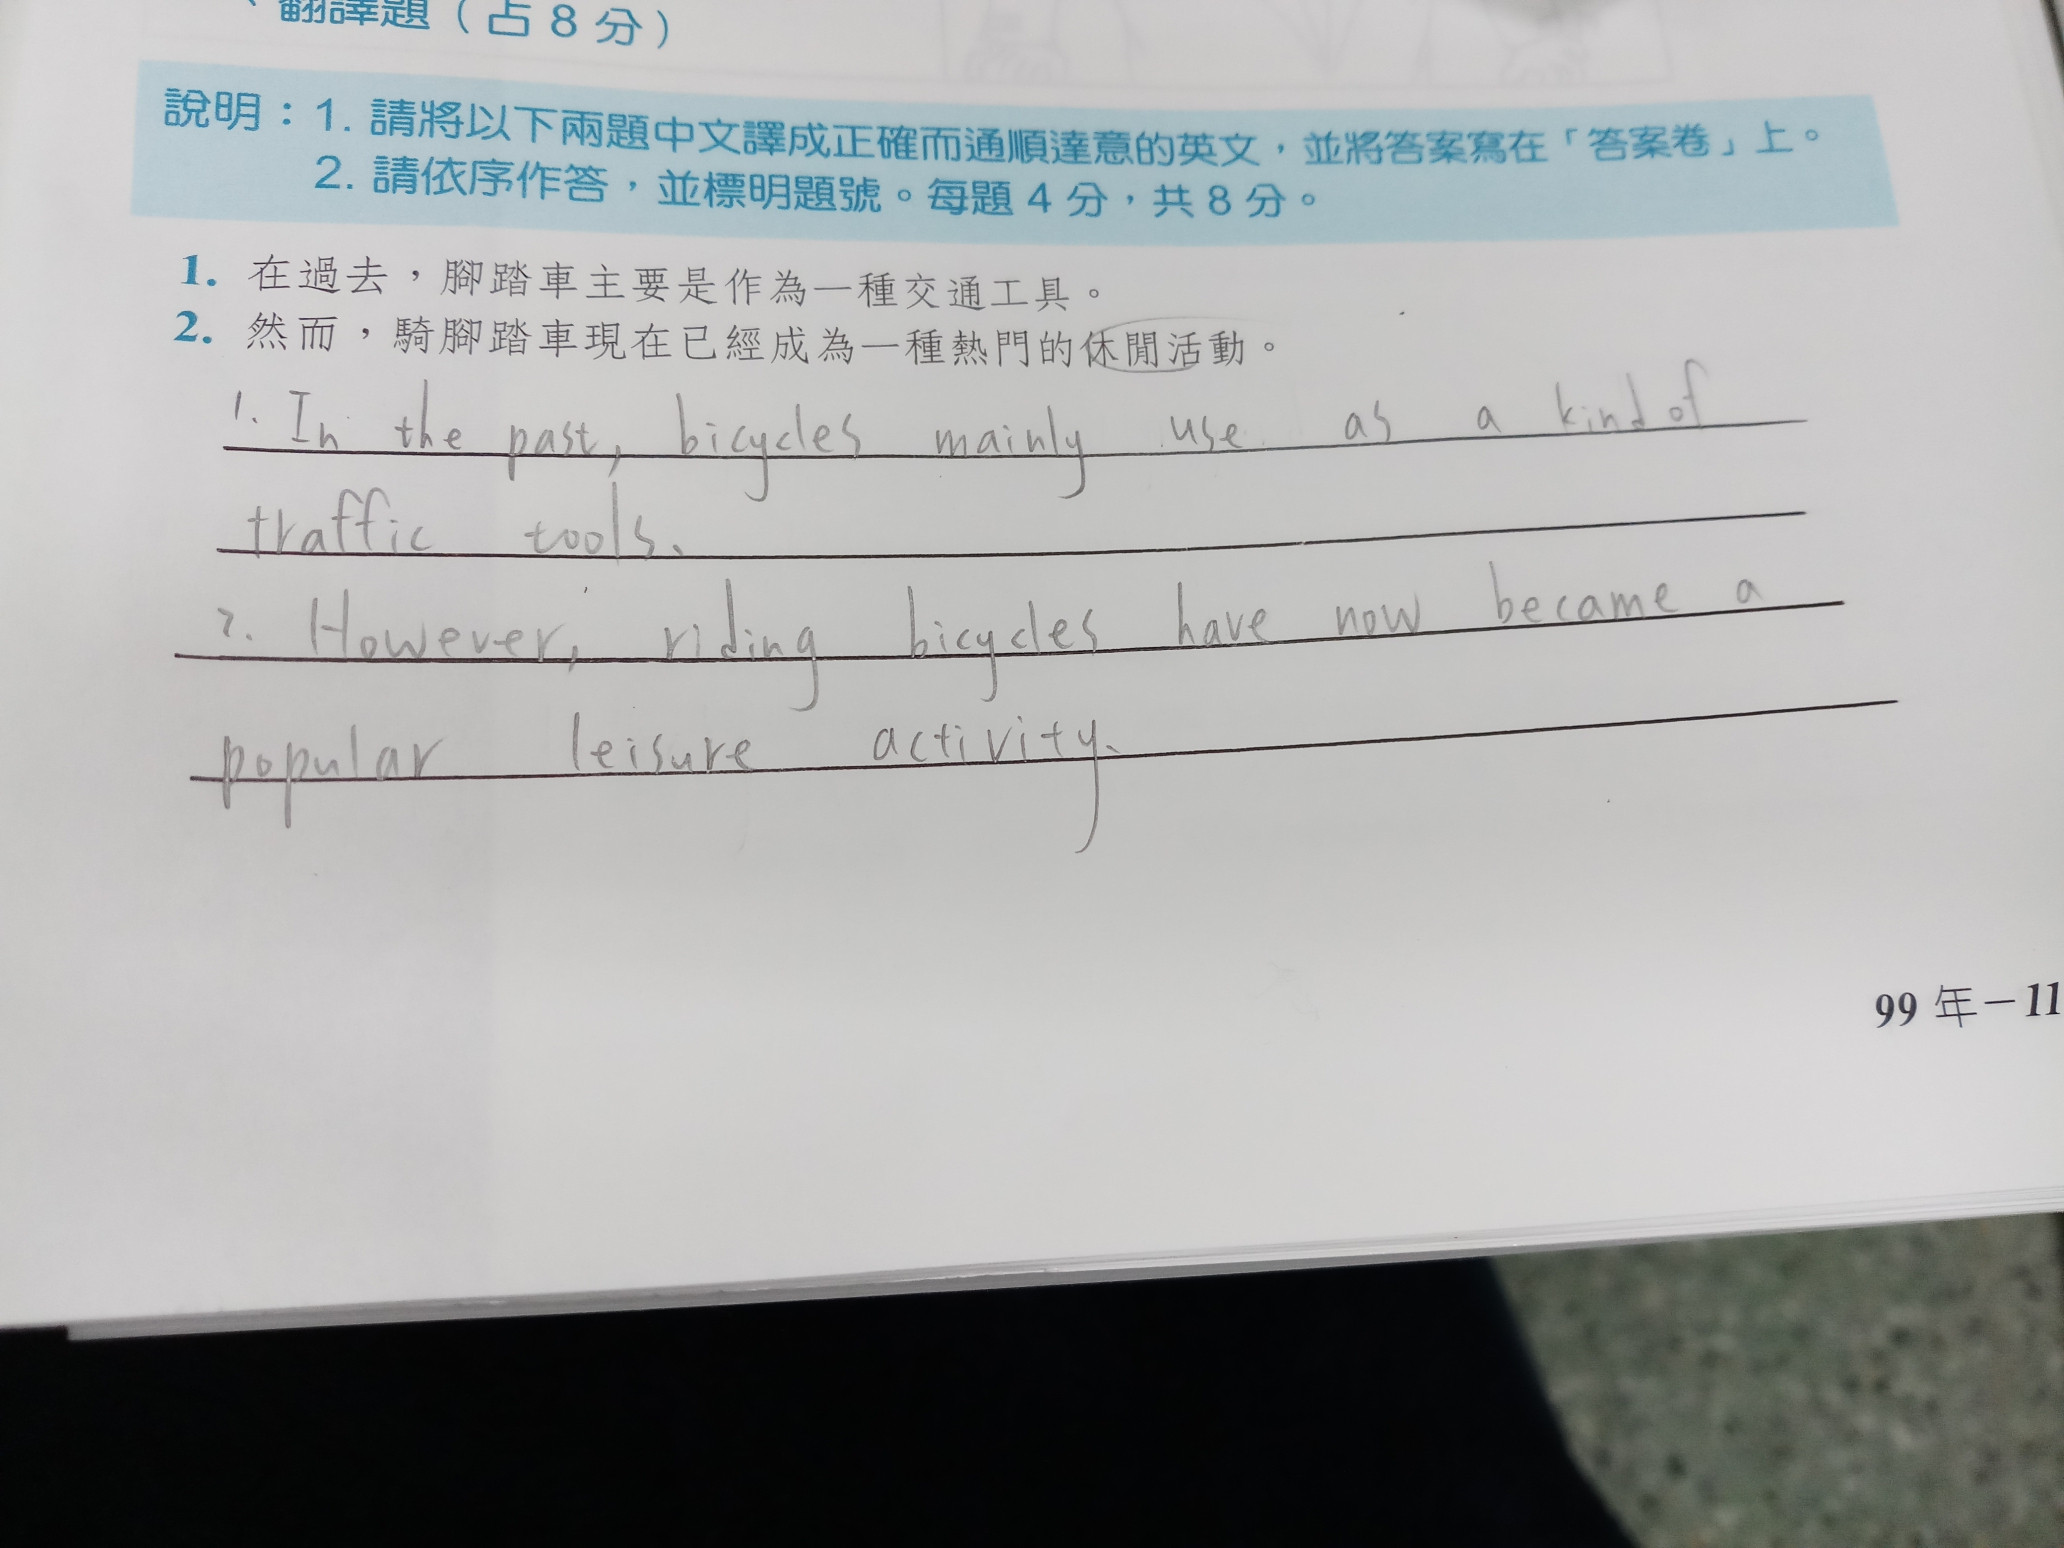 、翻譯題（占 8 分）
說明：1. 請將以下兩題中文譯成正確而通順達意的英文，並將答案寫在「答案卷」上。
2. 請依序作答，並標明題號。每題 4 分，共 8 分。
1. 在過去，腳踏車主要是作為一種交通工具。
2. 然而，騎腳踏車現在已經成為一種熱門的休閒活動。
1. In the past, bicycles mainly use as a kind of
traffic tools.
2. However, riding bicycles have now became a
popular leisure activity.
99 年－11